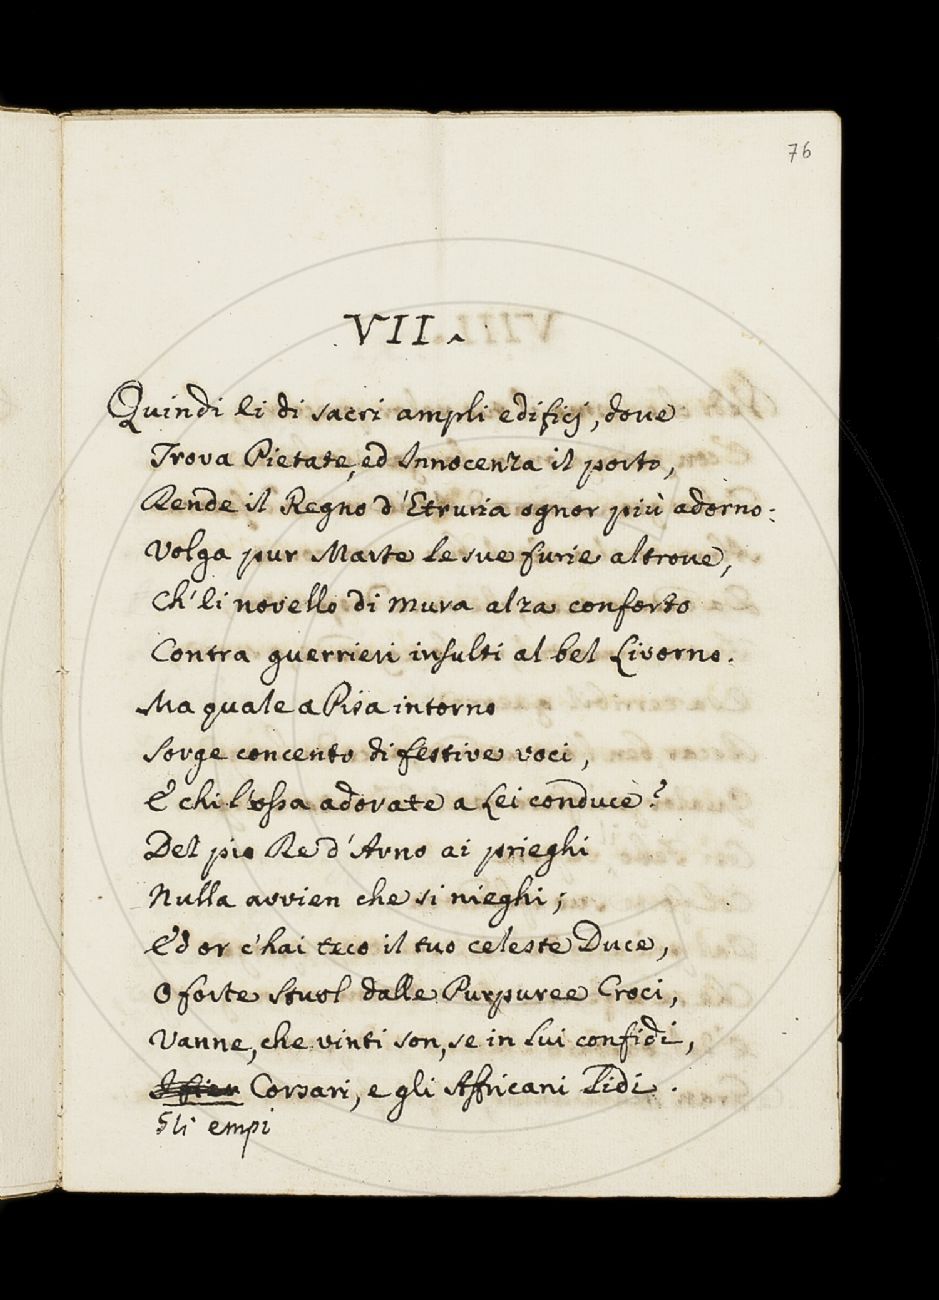 76
VII.
Quindi li di sacri ampli edificj, dove
Trova Pietate, ed Innocenza il porto,
Rende il Regno d'Etruria ognor più adorno:
Volga pur Marte le sue furie altrove,
Ch'li novello di mura alza conforto
Contra guerrieri insulti al bel Livorno.
Ma quale a Pisa intorno
Sorge concento di festive voci,
E chi l'ossa adorate a Lei conduce?
Del pio Re d'Arno ai prieghi
Nulla avvien che si nieghi;
Ed or c'hai teco il tuo celeste Duce,
O forte Stuol dalle Purpuree Croci,
Vanne, che vinti son, se in Lui confidi,
Corsari, e gli Affricani Lidi.
Gli empi